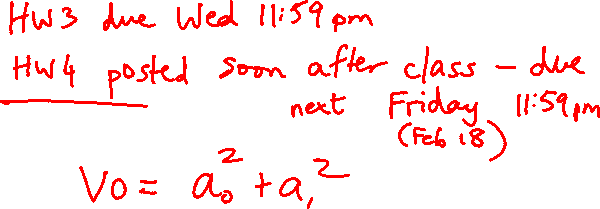 HW3 due Wed 11:59pm
HW4 posted soon after class - due
next Friday 11:59pm
(Feb 18)
Vo = a₀² + a₁²